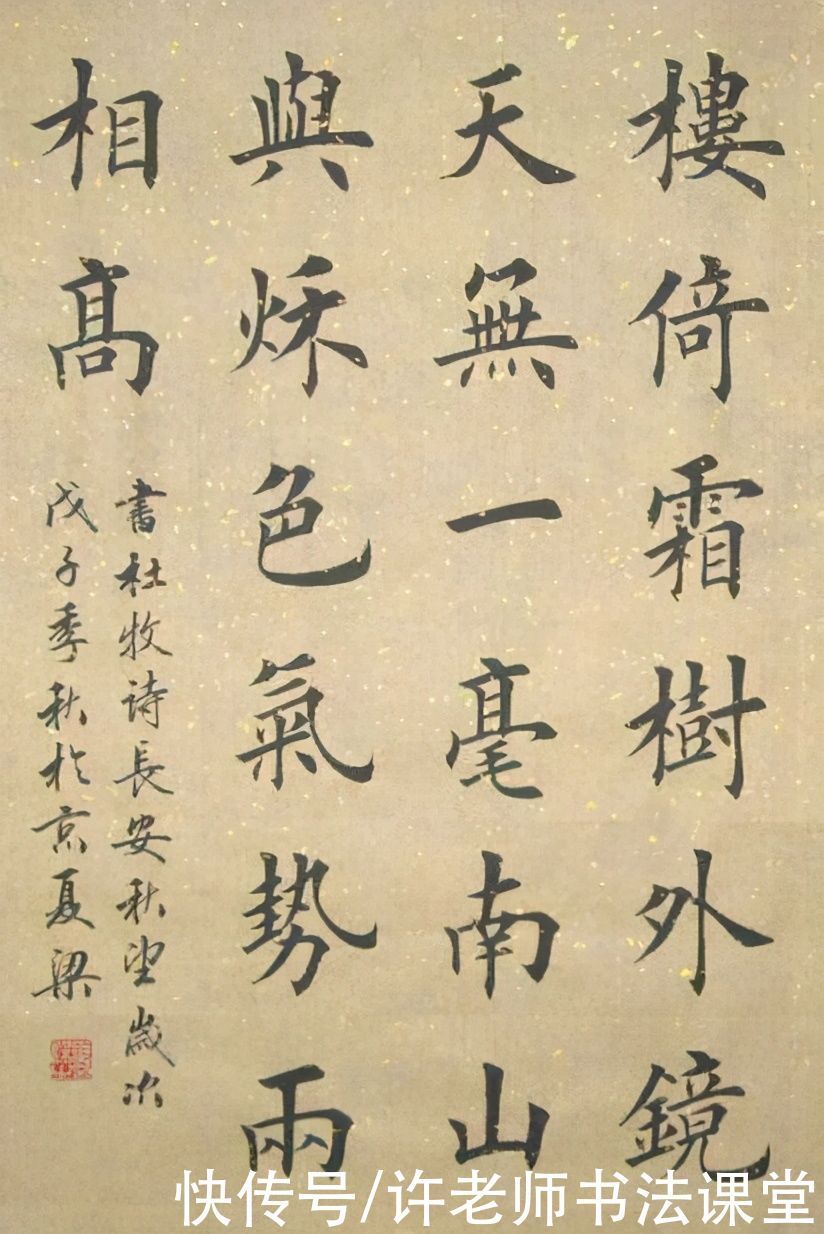 樓倚霜樹外鏡
天無一毫南山
與秌色氣勢兩
相高
書杜牧诗長安秋望歲次
戊子季秋於京夏梁
快传号/许老师书法课堂